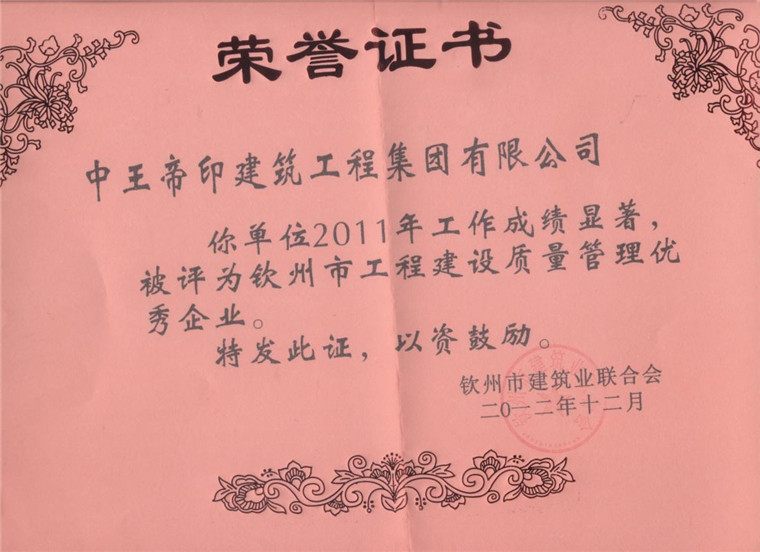 荣誉证书
中王帝印建筑工程集团有限公司
你单位2011年工作成绩显著，
被评为钦州市工程建设质量管理优
秀企业。
特发此证，以资鼓励。
钦州市建筑业联合会
二0一二年十二月